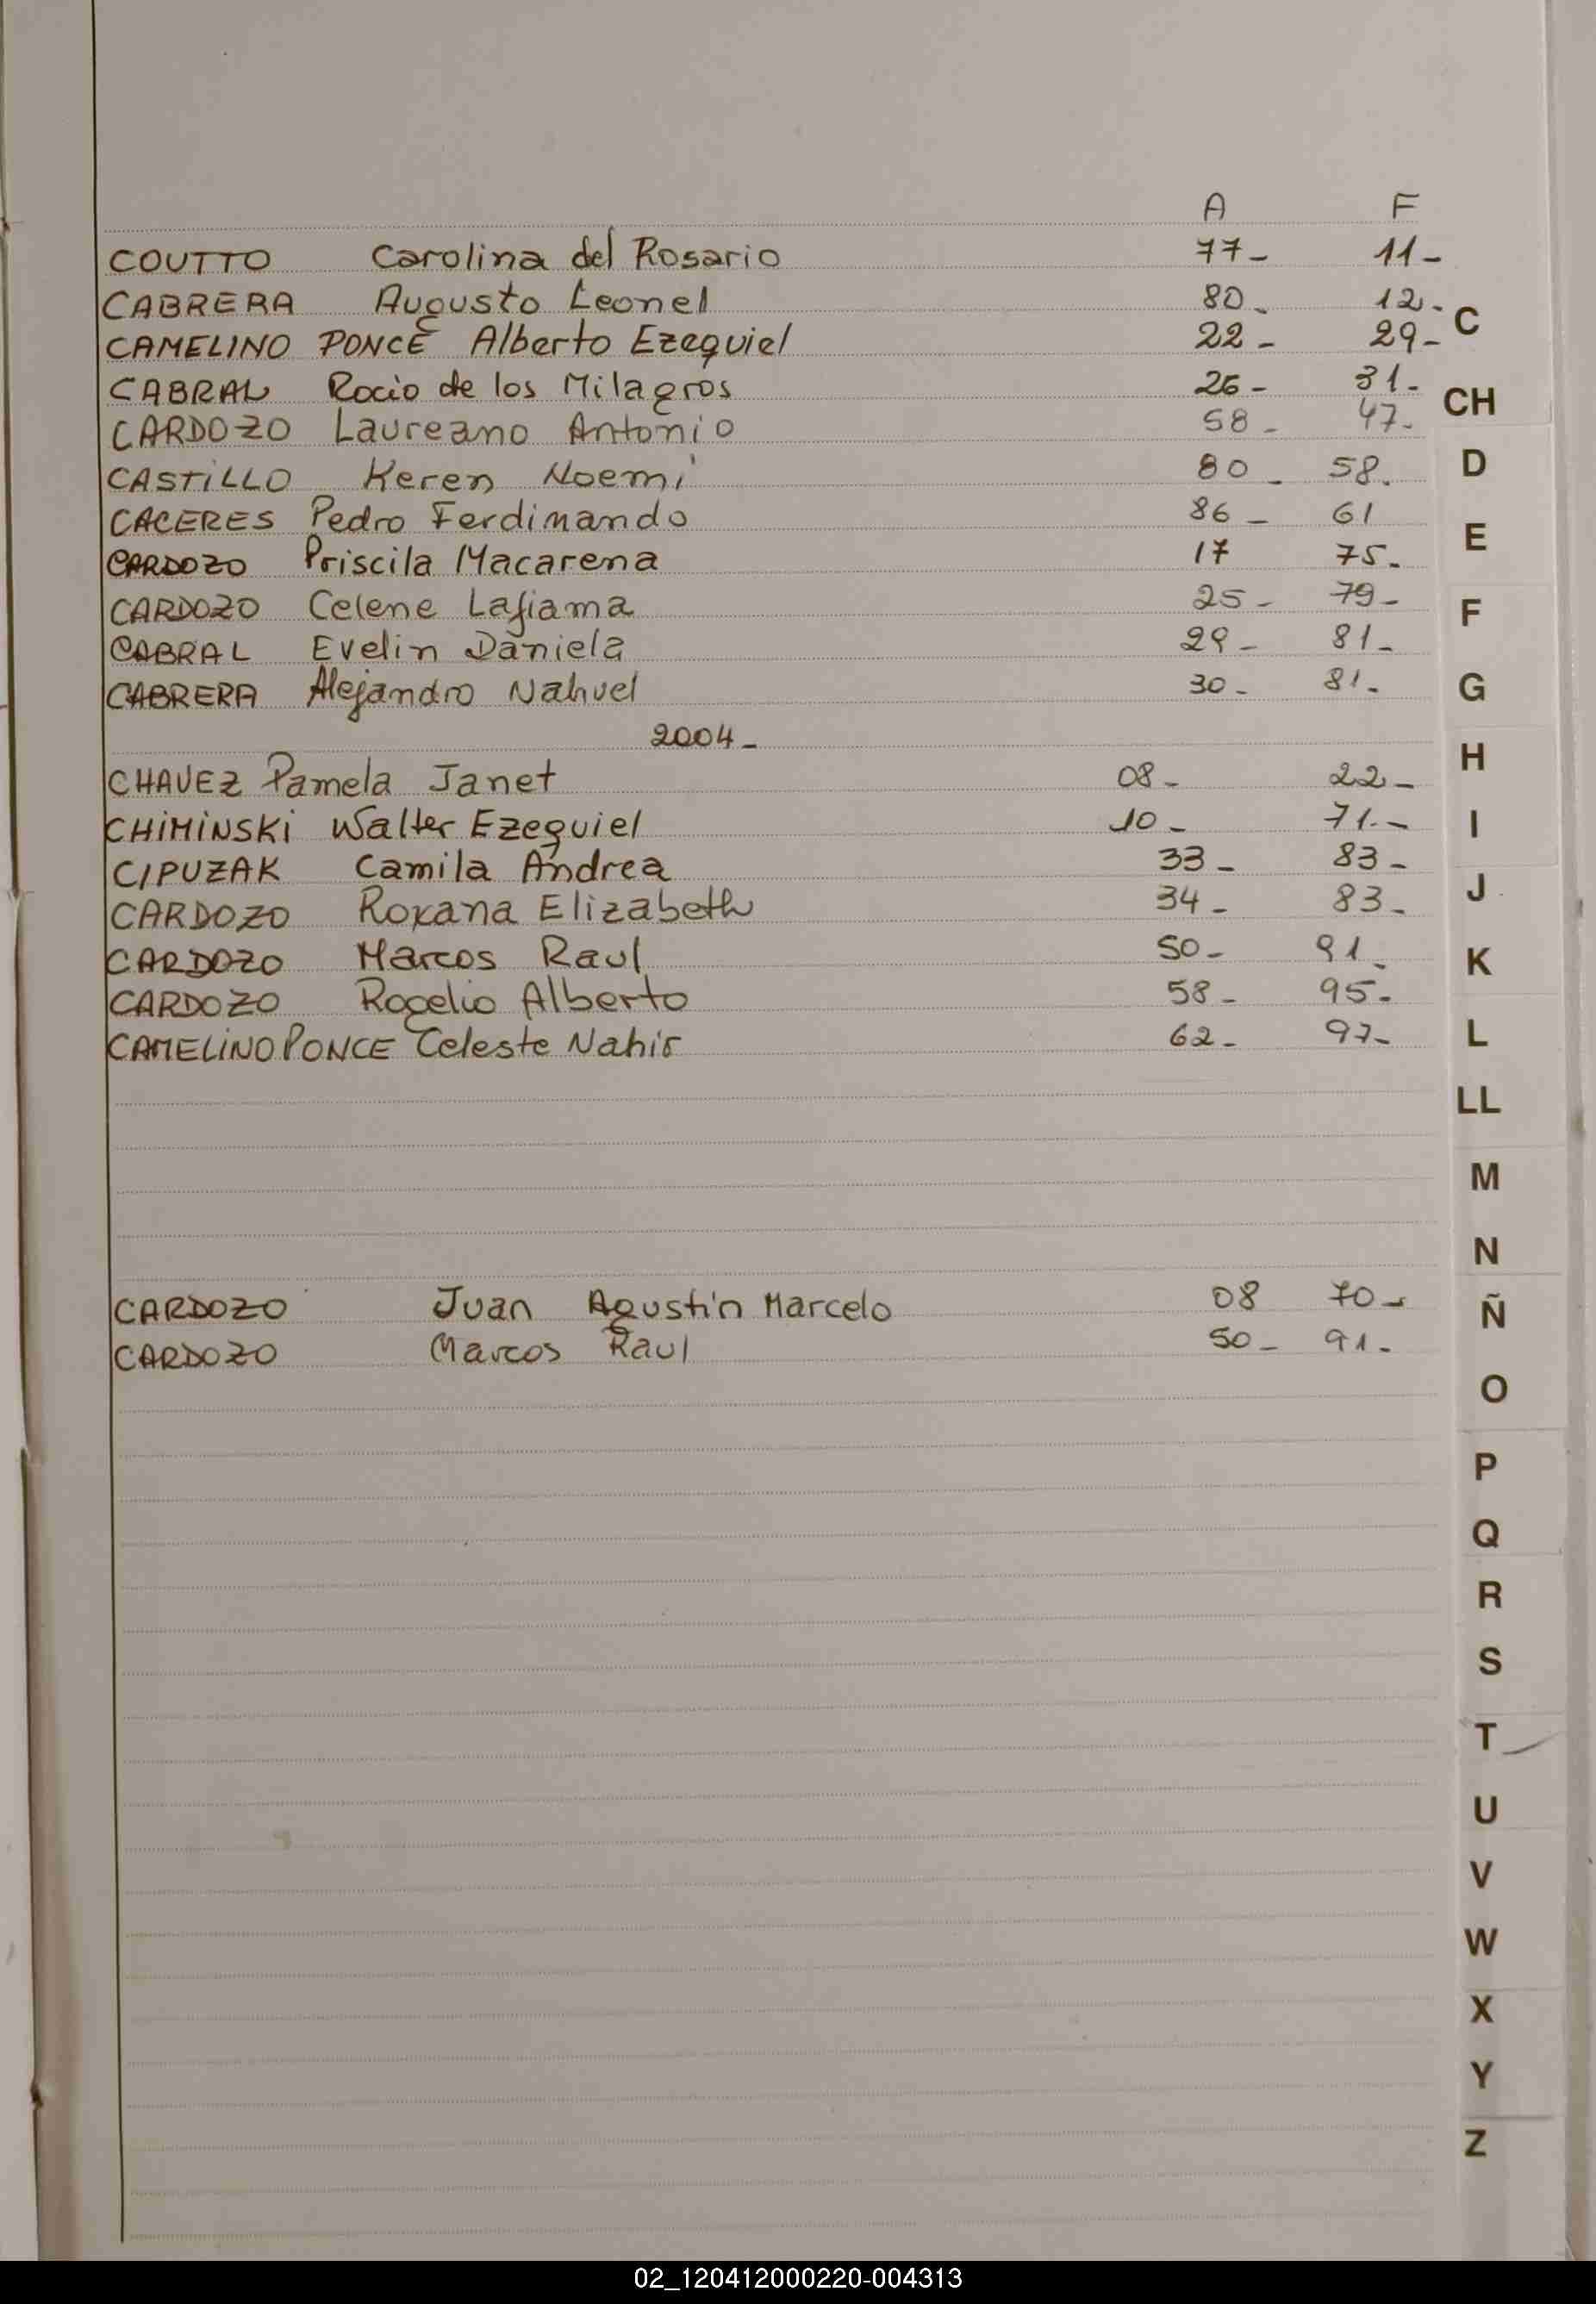 A F
COUTTO Carolina del Rosario 77- 11-
CABRERA Augusto Leonel 80- 12-
CAMELINO PONCE Alberto Ezequiel 22- 29-
CABRAL Rocio de los Milagros 26- 31-
CARDOZO Laureano Antonio 58- 47-
CASTiLLO Keren Noemí 80- 58.
CACERES Pedro Ferdinando 86- 61
CARDOZO Priscila Macarena 17 75-
CARDOZO Celene 25- 79-
CABRAL Evelin Daniela 29- 81-
CABRERA Alejandro Nahuel 30- 81-
2004-
CHAVEZ Pamela Janet 08- 22-
CHiMiNSKi Walter Ezequiel 10- 71.-
CIPUZAK Camila Andrea 33- 83-
CARDOZO Roxana Elizabeth 34- 83-
CARDOZO Marcos Raul 50- 91-
CARDOZO Rogelio Alberto 58- 95-
CAMELiNO PONCE Celeste Nahir 62- 97-
CARDOZO Juan Agustín Marcelo 08 70-
CARDOZO Marcos Raul 50- 91-
C
CH
D
E
F
G
H
I
J
K
L
LL
M
N
Ñ
O
P
Q
R
S
T
U
V
W
X
Y
Z
02_120412000220-004313